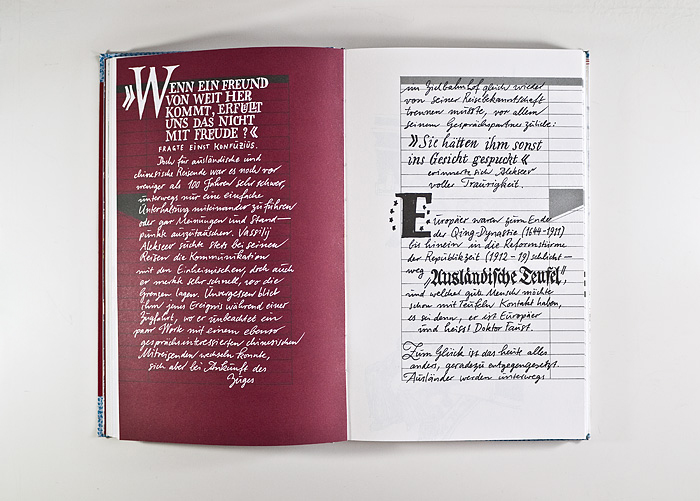 »WENN EIN FREUND
VON WEIT HER
KOMMT, ERFÜLLT
UNS DAS NICHT
MIT FREUDE?«
FRAGTE EINST KONFUZIUS.
Doch für ausländische und
chinesische Reisende war es noch vor
weniger als 100 Jahren sehr schwer,
unterwegs nur eine einfache
Unterhaltung miteinander zu führen
oder gar Meinungen und Stand-
punkte auszutauschen. Vassilij
Alekseev suchte stets bei seinen
Reisen die Kommunikation
mit den Einheimischen, doch auch
er merkte sehr schnell, wo die
Grenzen lagen. Unvergessen blieb
ihm jenes Ereignis während einer
Zugfahrt, wo er unbeachtet ein
paar Worte mit einem ebenso
gesprächsinteressierten chinesischen
Mitreisenden wechseln konnte,
sich aber bei Ankunft des
Zuges
im Zielbahnhof gleich wieder
von seiner Reisebekanntschaft
trennen musste, vor allem
seinem Gesprächspartner zuliebe:
»Sie hätten ihm sonst
ins Gesicht gespuckt«
erinnerte sich Alekseev
voller Traurigkeit.
Europäer waren zum Ende
der Qing-Dynastie (1644-1911)
bis hinein in die Reformstürme
der Republikzeit (1912-19) schlicht-
weg „Ausländische Teufel“,
und welcher gute Mensch möchte
schon mit Teufeln Kontakt haben,
es sei denn, er ist Europäer
und heisst Doktor Faust.
Zum Glück ist das heute alles
anders, geradezu entgegengesetzt.
Ausländer werden unterwegs